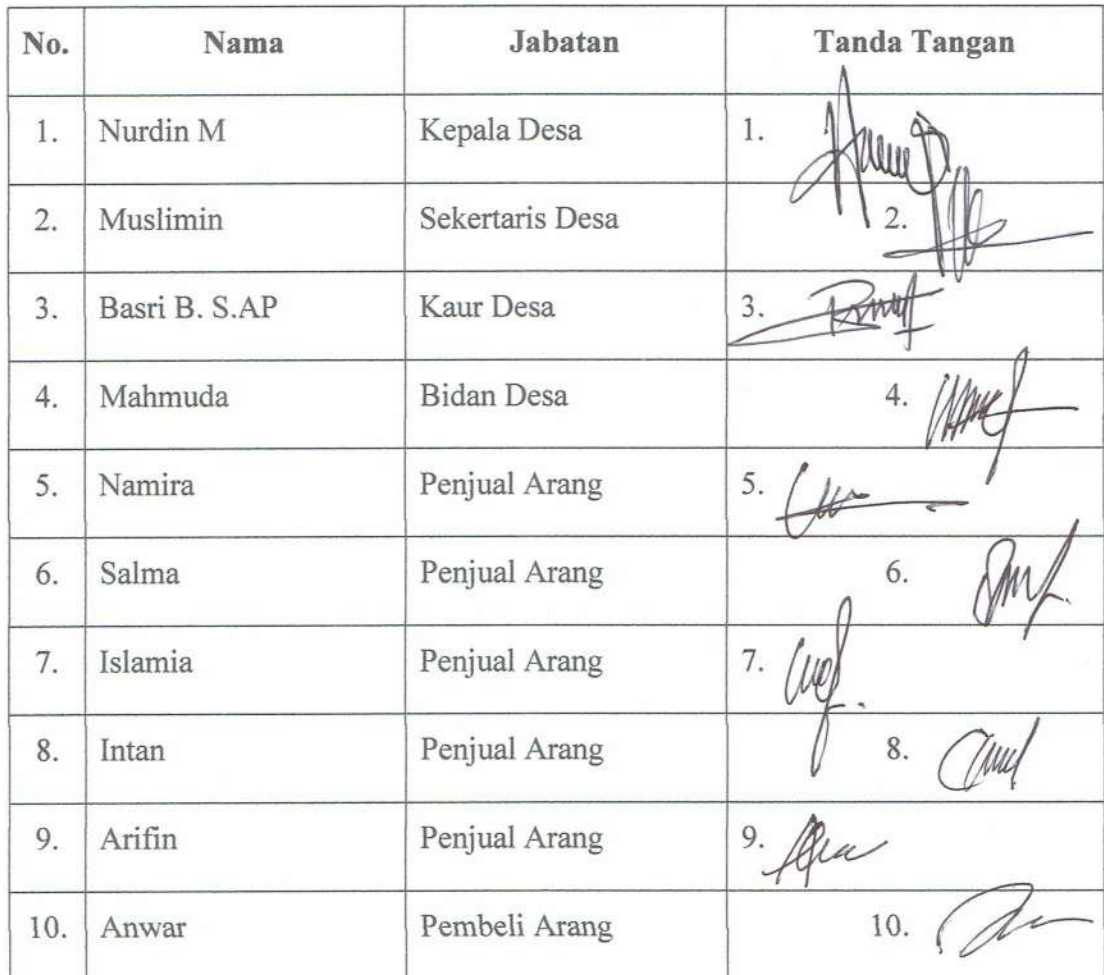 No. Nama Jabatan Tanda Tangan
1. Nurdin M Kepala Desa 1.
2. Muslimin Sekertaris Desa 2.
3. Basri B. S.AP Kaur Desa 3.
4. Mahmuda Bidan Desa 4.
5. Namira Penjual Arang 5.
6. Salma Penjual Arang 6.
7. Islamia Penjual Arang 7.
8. Intan Penjual Arang 8.
9. Arifin Penjual Arang 9.
10. Anwar Pembeli Arang 10.